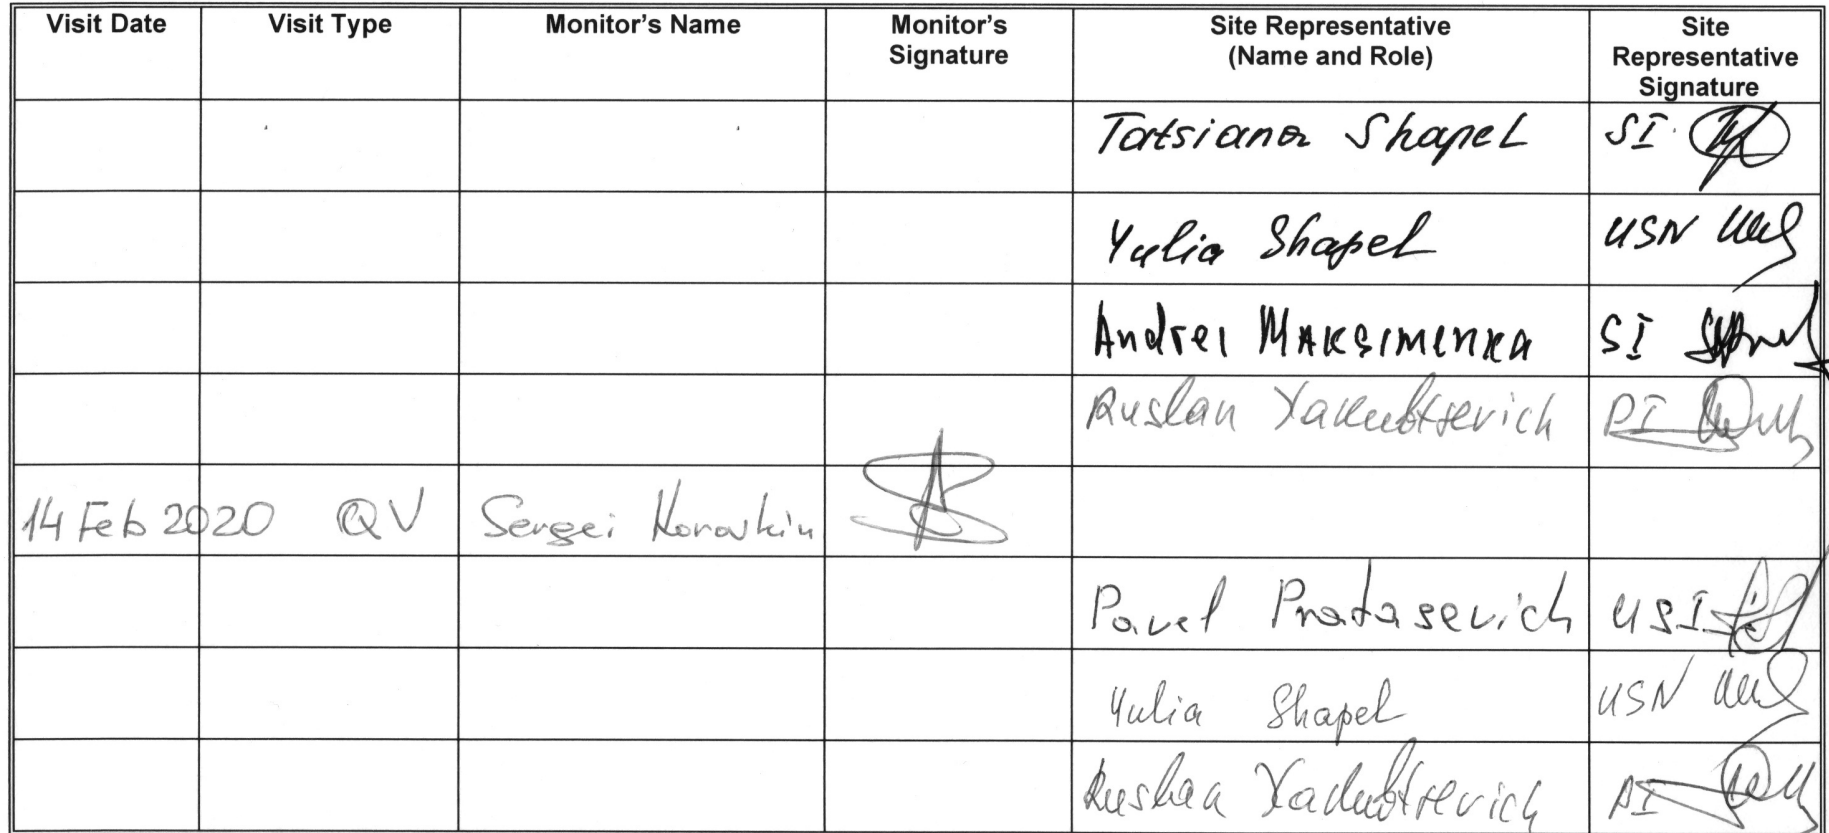 Visit Date Visit Type Monitor's Name Monitor's Signature Site Representative (Name and Role) Site Representative Signature
Tatsiana Shapel SI
Yulia Shapel USN
Andrei Maksimenka SI
Ruslan Yakubtsevich PI
14 Feb 2020 QV Sergei Korovkin
Pavel Pratasevich USI
Yulia Shapel USN
Ruslan Yakubtsevich PI